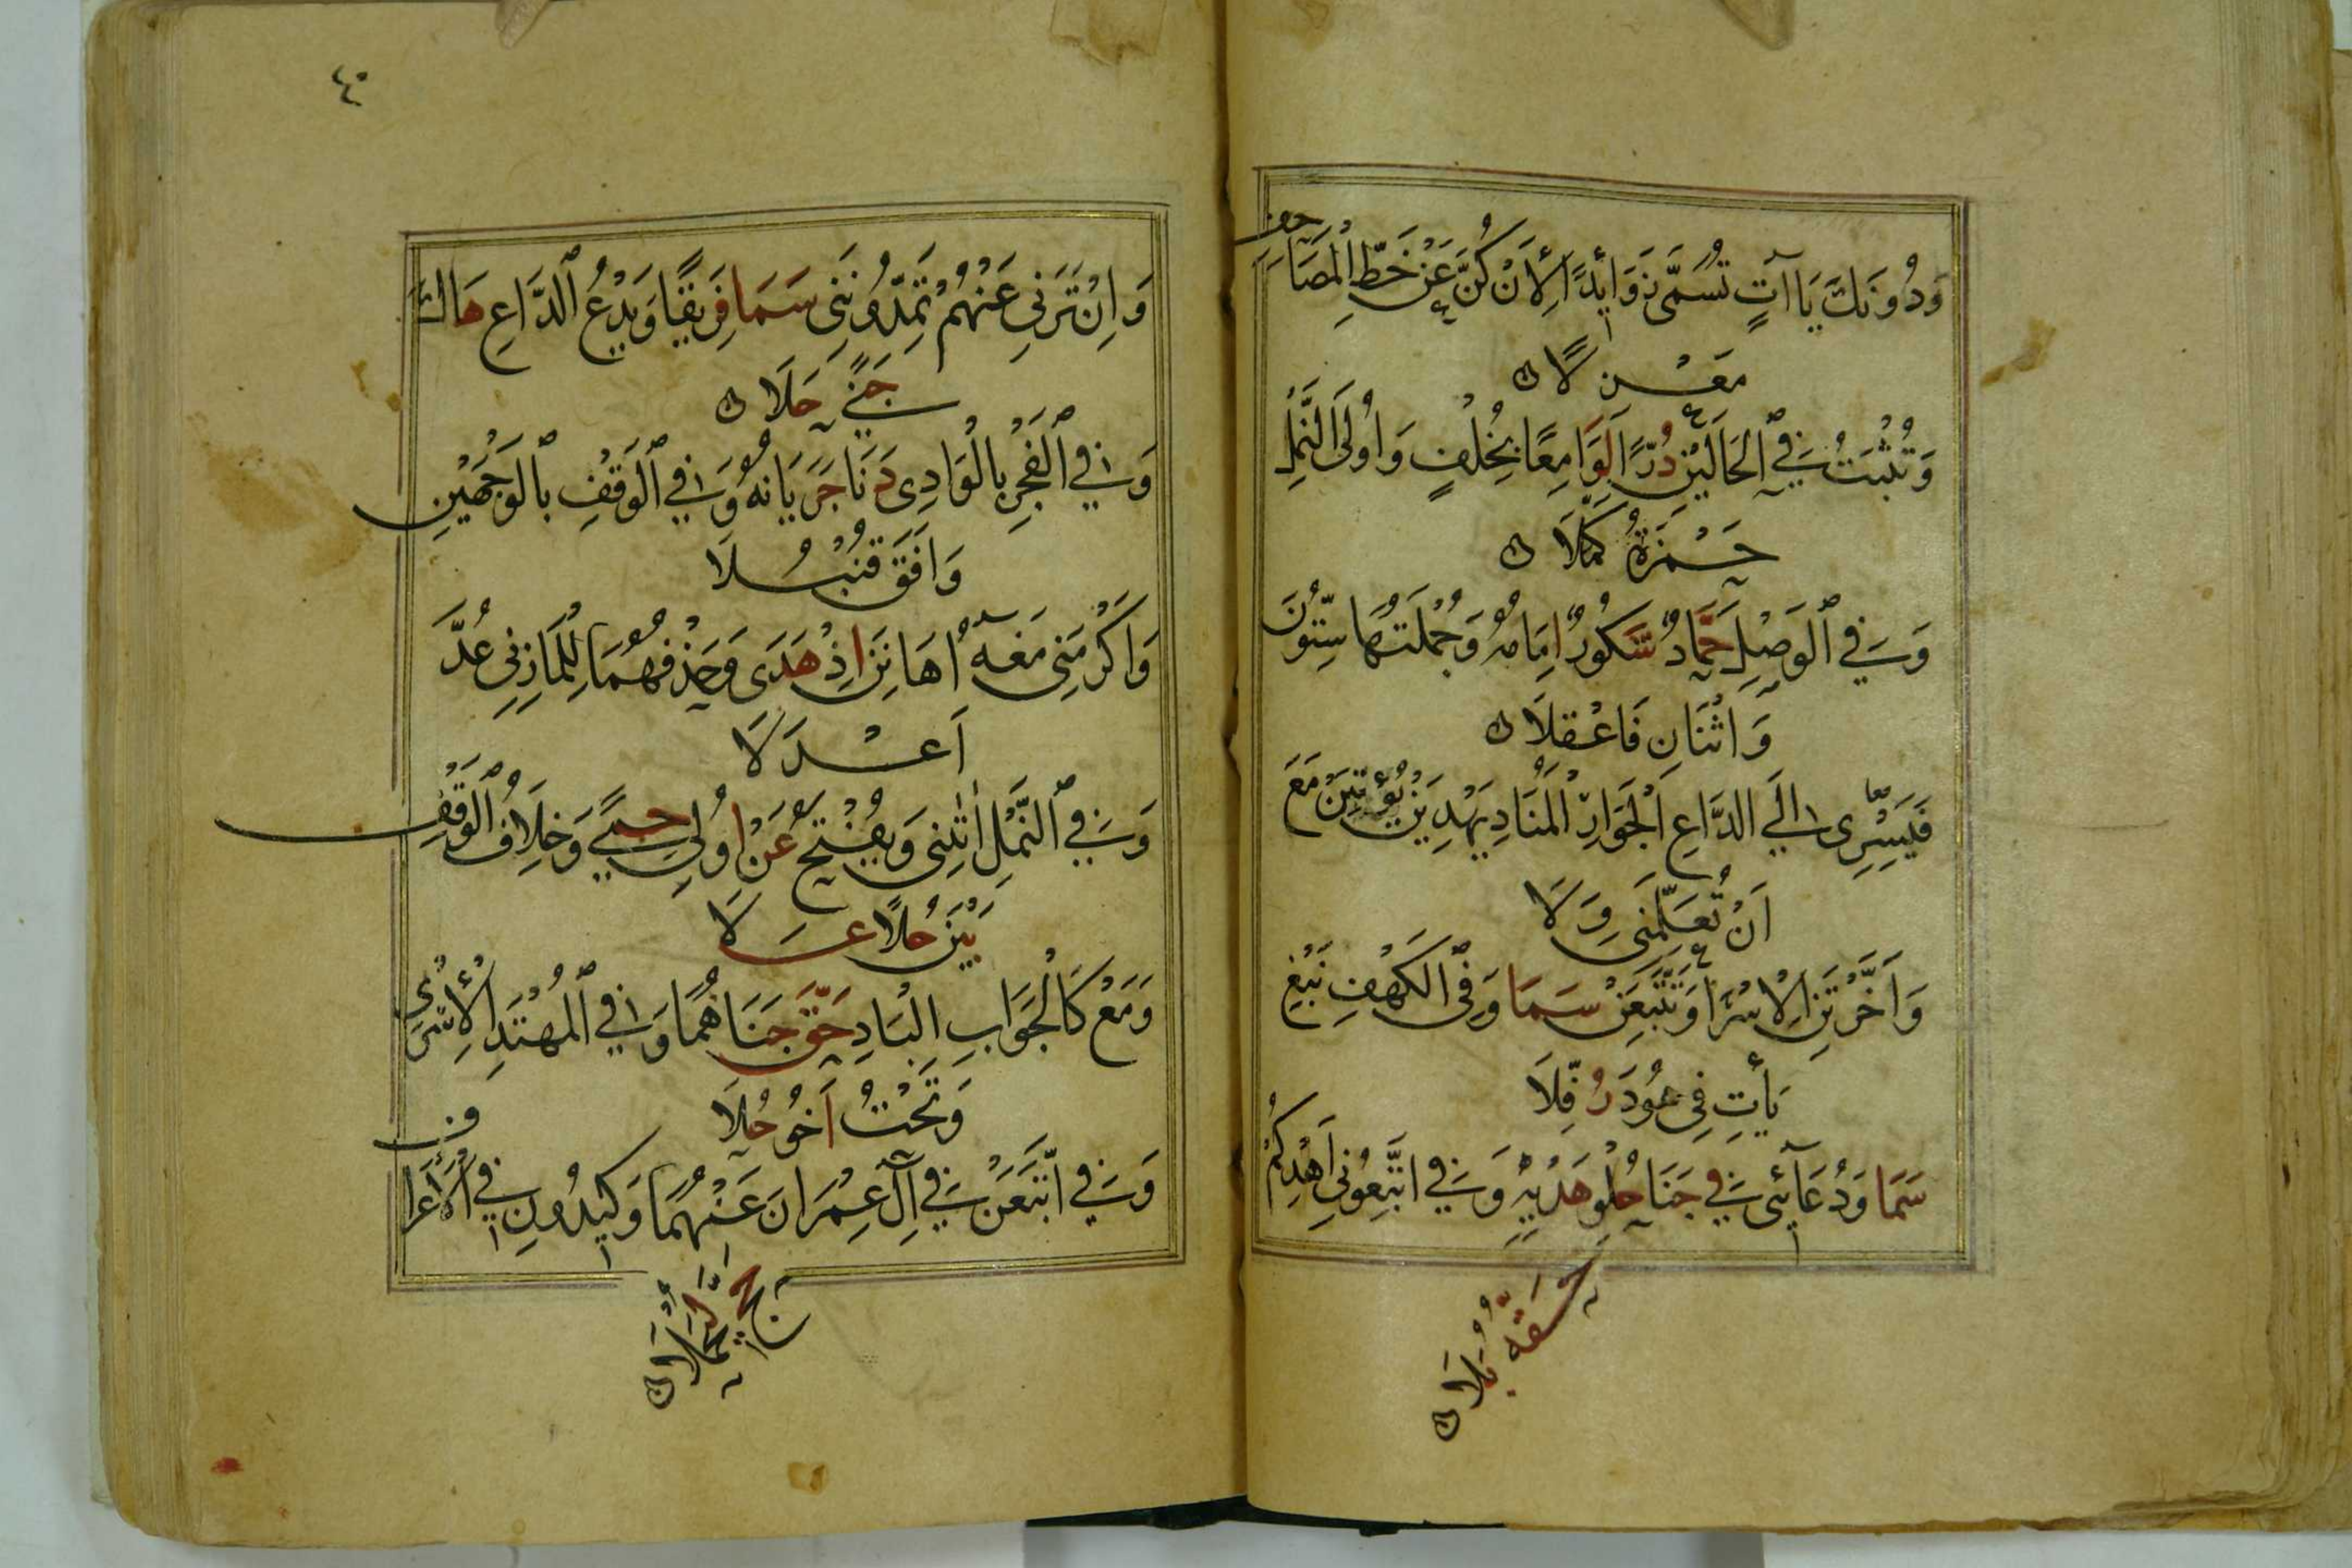 وَدُونَكَ يَاآتٍ تُسَمَّى زَوَائِدًا لِأَنْ كُنَّ عَنْ خَطِّ الْمَصَاحِفِ
مَعْزِلًا
وَتُثْبَتُ فِي الْحَالَيْنِ دُرًّا لَوَامِعًا بِخُلْفٍ وَاُولَى النَّمْلِ
حَمْزَةُ كَمَّلَا
وَفِي الْوَصْلِ حَمَّادٌ شَكُورٌ اِمَامُهُ وَجُمْلَتُهَا سِتُّونَ
وَاثْنَانِ فَاعْقِلَا
فَيَسْرِى اِلَى الدَّاعِ الْجَوَارِ الْمُنَادِ يَهْدِيَنْ يُؤْتِيَنْ مَعَ
اَنْ تُعَلِّمَنِى وِلَا
وَاَخَّرْتَنِ الْاِسْرَا وَتَتَّبِعَنْ سَمَا وَفِى الْكَهْفِ نَبْغِ
يَأْتِ فِى هُودَ رُفِّلَا
سَمَا وَدُعَائِى فِى جَنَا حُلْوِ هَدْيِهِ وَفِى اتَّبِعُونِى اَهْدِكُمْ
حَقُّهُ بَلَا
٤٠
وَاِنْ تَرَنِى عَنْهُمْ تُمِدُّونَنِى سَمَا فَرِيقًا وَيَدْعُ الدَّاعِ هَاكَ
جَنًى حَلَا
وَفِى الْفَجْرِ بِالْوَادِى دَنَا جَرَيَانُهُ وَفِى الْوَقْفِ بِالْوَجْهَيْنِ
وَافَقَ قُنْبُلَا
وَاَكْرَمَنِى مَعْهُ اَهَانَنِ اِذْ هَدَى وَحَذْفُهُمَا لِلْمَازِنِى عُدَّ
اَعْدَلَا
وَفِى النَّمْلِ اٰتٰنِى وَيُفْتَحُ عَنْ اُولِى حِمًى وَخِلَافُ الْوَقْفِ
بَيْنَ حُلًا عَلَا
وَمَعْ كَالْجَوَابِ الْبَادِ حَقٌّ جَنَاهُمَا وَفِى الْمُهْتَدِ الْاِسْرَى
وَتَحْتُ اَخُو حُلَا
وَفِى اتَّبَعَنْ فِى آلِ عِمْرَانَ عَنْهُمَا وَكِيدُونِ فِى الْاَعْرَافِ
حَجَّ لِيُحْمَلَا